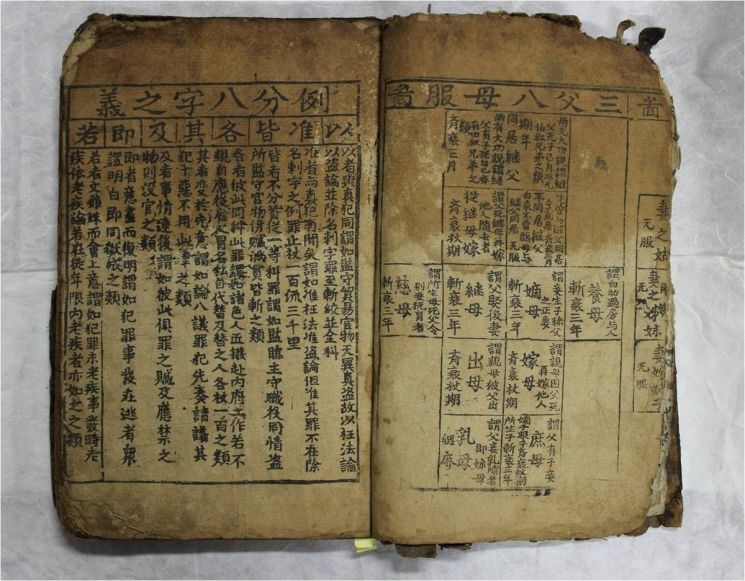 啚
妻之姑
无服
妻之姊妹
无服
无服
三父八母服啚
同居繼父
期年
齊衰三月
不同居繼父
无服
從繼母嫁
齊衰杖期
謂自幼過房与人
養母
斬衰三年
謂妾生子稱父之正妻
嫡母
斬衰三年
謂父娶後妻
繼母
斬衰三年
謂所生母死父令別妾撫育者
慈母
斬衰三年
謂親母因父死再嫁他人
嫁母
齊衰杖期
謂親母被父出
出母
齊衰杖期
謂父有子妾
嫡子衆子齊衰杖期
所生子斬衰三年
庶母
謂父妾乳哺者
即奶母
乳母
緦麻
例分八字之義
以 准 皆 各 其 及 即 若
以者與真犯同謂如監守貿易官物无異真盜故以枉法論
以盜論並除名刺字罪至斬絞並全科
准者與真犯有間矣謂如准枉法准盜論但准其罪不在除
名刺字之例罪止杖一百流三千里
皆者不分首從一等科罪謂如監臨主守職役同情盜
所監守官物併贓滿貫皆斬之類
各者彼此同科此罪謂如諸色人匠撥赴內府工作若不
親自應役雇人冒名私自代替及替之人各杖一百之類
其者变於先意謂如論八議罪犯先奏請議其
犯十惡不用此律之類
及者事情連後謂如彼此俱罪之贓及應禁之
物則沒官之類
即者意盡而復明謂如犯罪事發在逃者衆
證明白即同獄成之類
若者文雖殊而會上意謂如犯罪未老疾事發時老
疾依老疾論若在徒年限內老疾者亦如之之類